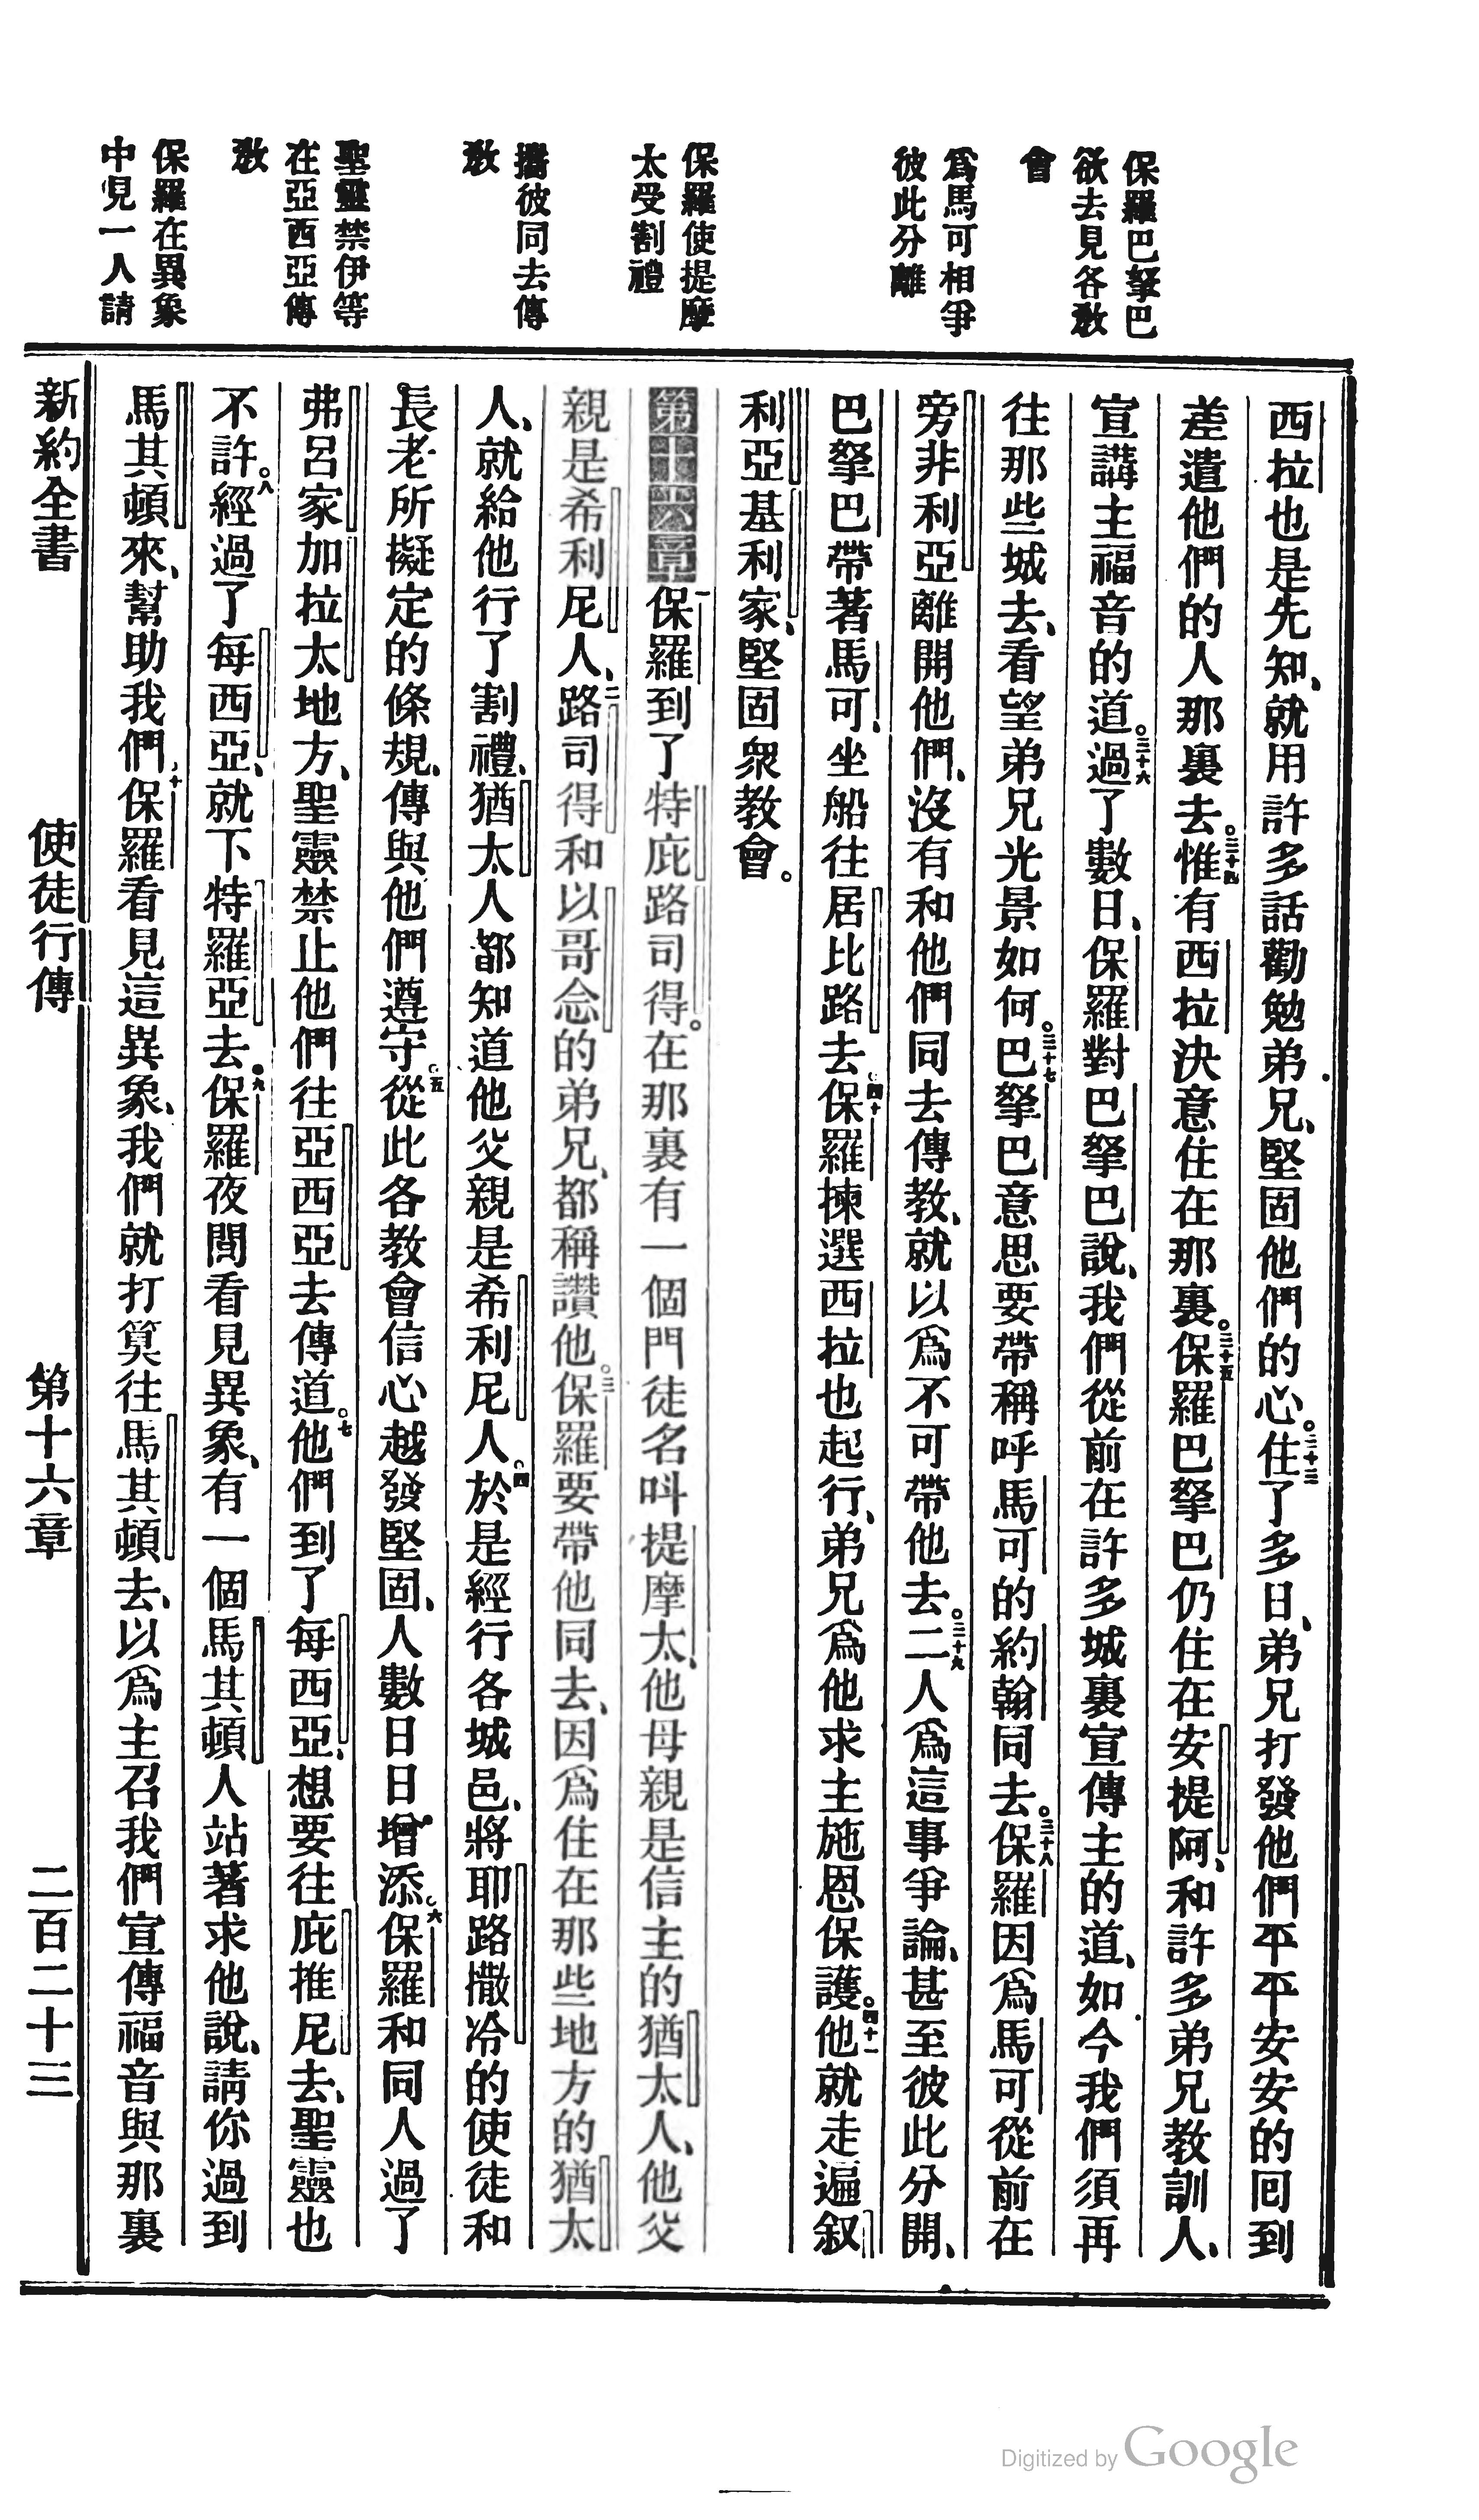 保羅巴拏巴
欲去見各教
會
爲馬可相爭
彼此分離
保羅使提摩
太受割禮
攜彼同去傳
教
聖靈禁伊等
在亞西亞傳
教
保羅在異象
中見一人請
西拉也是先知、就用許多話勸勉弟兄、堅固他們的心。三十三住了多日、弟兄打發他們平平安安的回到
差遣他們的人那裏去。三十四惟有西拉決意住在那裏。三十五保羅巴拏巴仍住在安提阿、和許多弟兄教訓人、
宣講主福音的道。三十六過了數日、保羅對巴拏巴說、我們從前在許多城裏宣傳主的道、如今我們須再
往那些城去、看望弟兄光景如何。三十七巴拏巴意思要帶稱呼馬可的約翰同去。三十八保羅因爲馬可從前在
旁非利亞離開他們、沒有和他們同去傳教、就以爲不可帶他去。三十九二人爲這事爭論、甚至彼此分開、
巴拏巴帶著馬可、坐船往居比路去。四十保羅揀選西拉也起行、弟兄爲他求主施恩保護。四十一他就走遍叙
利亞基利家、堅固眾教會。
第十六章 一保羅到了特庇路司得。在那裏有一個門徒名叫提摩太、他母親是信主的猶太人、他父
親是希利尼人、二路司得和以哥念的弟兄、都稱讚他。三保羅要帶他同去、因爲住在那些地方的猶太
人、就給他行了割禮、猶太人都知道他父親是希利尼人。四於是經行各城邑、將耶路撒冷的使徒和
長老所擬定的條規、傳與他們遵守。五從此各教會信心越發堅固、人數日日增添。六保羅和同人過了
弗呂家加拉太地方、聖靈禁止他們往亞西亞去傳道。七他們到了每西亞、想要往庇推尼去、聖靈也
不許。八經過了每西亞、就下特羅亞去。九保羅夜間看見異象、有一個馬其頓人站著求他說、請你過到
馬其頓來、幫助我們。十保羅看見這異象、我們就打算往馬其頓去、以爲主召我們宣傳福音與那裏
新約全書 使徒行傳 第十六章 二百二十三
Digitized by Google